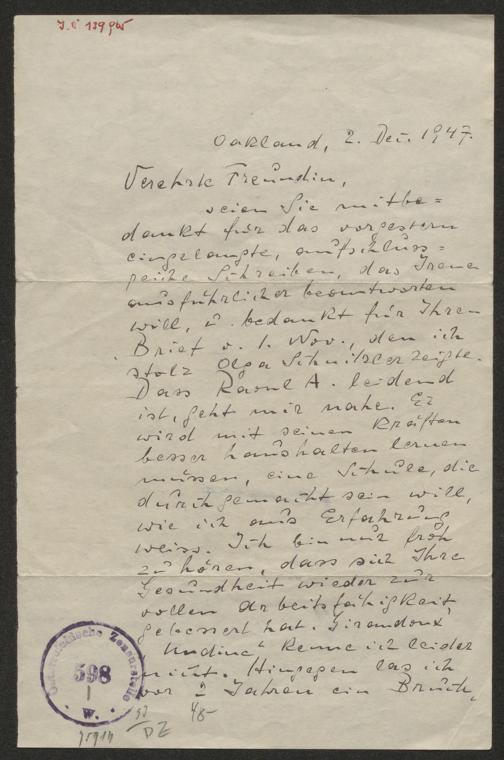 Oakland, 2. Dez. 1947.
Verehrte Freundin,
seien Sie mitbe=
dankt für das vorgestern
eingelangte, aufschluss=
reiche Schreiben, das Irene
ausführlicher beantworten
will, u. bedankt für Ihren
Brief v. 1. Nov., den ich
stolz Olga Schnitzler zeigte.
Dass Raoul A. leidend
ist, geht mir nahe. Er
wird mit seinen Kräften
besser haushalten lernen
müssen, eine Schule, die
durchgemacht sein will,
wie ich aus Erfahrung
weiss. Ich bin nur froh
zu hören, dass sich Ihre
Gesundheit wieder zur
vollen Arbeitsfähigkeit
gebessert hat. Giraudoux'
"Undine" kenne ich leider
nicht. Hingegen las ich
vor 2 Jahren ein Bruch,
Österreichische Zensurstelle
598
W.
DZ
48-